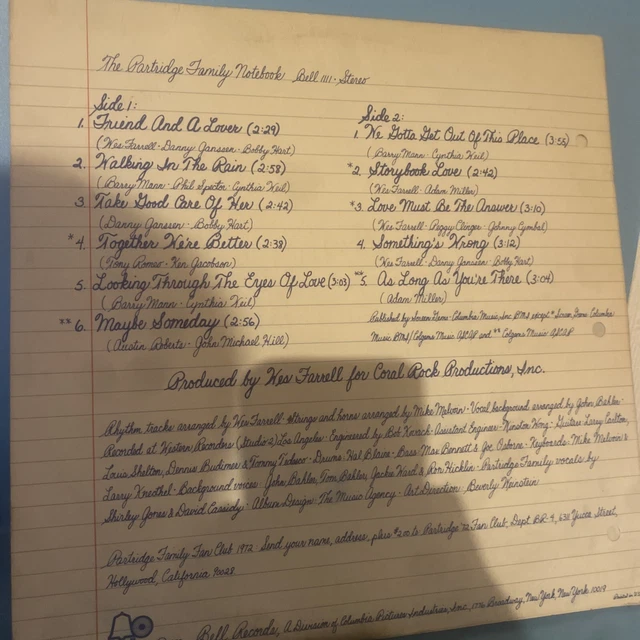 The Partridge Family Notebook Bell 1111 - Stereo
Side 1:
1. Friend And A Lover (2:29)
(Wes Farrell - Danny Janssen - Bobby Hart)
2. Walking In The Rain (2:58)
(Barry Mann - Phil Spector - Cynthia Weil)
3. Take Good Care Of Her (2:42)
(Danny Janssen - Bobby Hart)
*4. Together We're Better (2:38)
(Tony Romeo - Ken Jacobson)
5. Looking Through The Eyes Of Love (3:03)
(Barry Mann - Cynthia Weil)
**6. Maybe Someday (2:56)
(Austin Roberts - John Michael Hill)
Side 2:
1. We Gotta Get Out Of This Place (3:55)
(Barry Mann - Cynthia Weil)
*2. Storybook Love (2:42)
(Wes Farrell - Adam Miller)
*3. Love Must Be The Answer (3:10)
(Wes Farrell - Peggy Clinger - Johnny Cymbal)
4. Something's Wrong (3:12)
(Wes Farrell - Danny Janssen - Bobby Hart)
**5. As Long As You're There (3:04)
(Adam Miller)
Published by Screen Gems - Columbia Music, Inc. BMI except * Screen Gems Columbia
Music BMI/Colgems Music ASCAP and ** Colgems Music ASCAP
Produced by Wes Farrell for Coral Rock Productions, Inc.
Rhythm tracks arranged by Wes Farrell - Strings and horns arranged by Mike Melvoin - Vocal background arranged by John Bahler -
Recorded at Western Recorders (Studio 2) Los Angeles - Engineered by Bob Kovach - Assistant Engineer - Winston Wong - Guitars Larry Carlton,
Louis Shelton, Dennis Budimer & Tommy Tedesco - Drums: Hal Blaine - Bass: Max Bennett & Joe Osborne - Keyboards: Mike Melvoin &
Larry Knechtel - Background voices: John Bahler, Tom Bahler, Jackie Ward & Ron Hicklin - Partridge Family vocals by
Shirley Jones & David Cassidy - Album Design: The Music Agency - Art Direction: Beverly Weinstein
Partridge Family Fan Club 1972 - Send your name, address, plus $2.00 to Partridge '72 Fan Club, Dept. BR-4, 638 Yucca Street,
Hollywood, California 90028
Bell Records, A Division of Columbia Pictures Industries, Inc., 1776 Broadway, New York, New York 10019